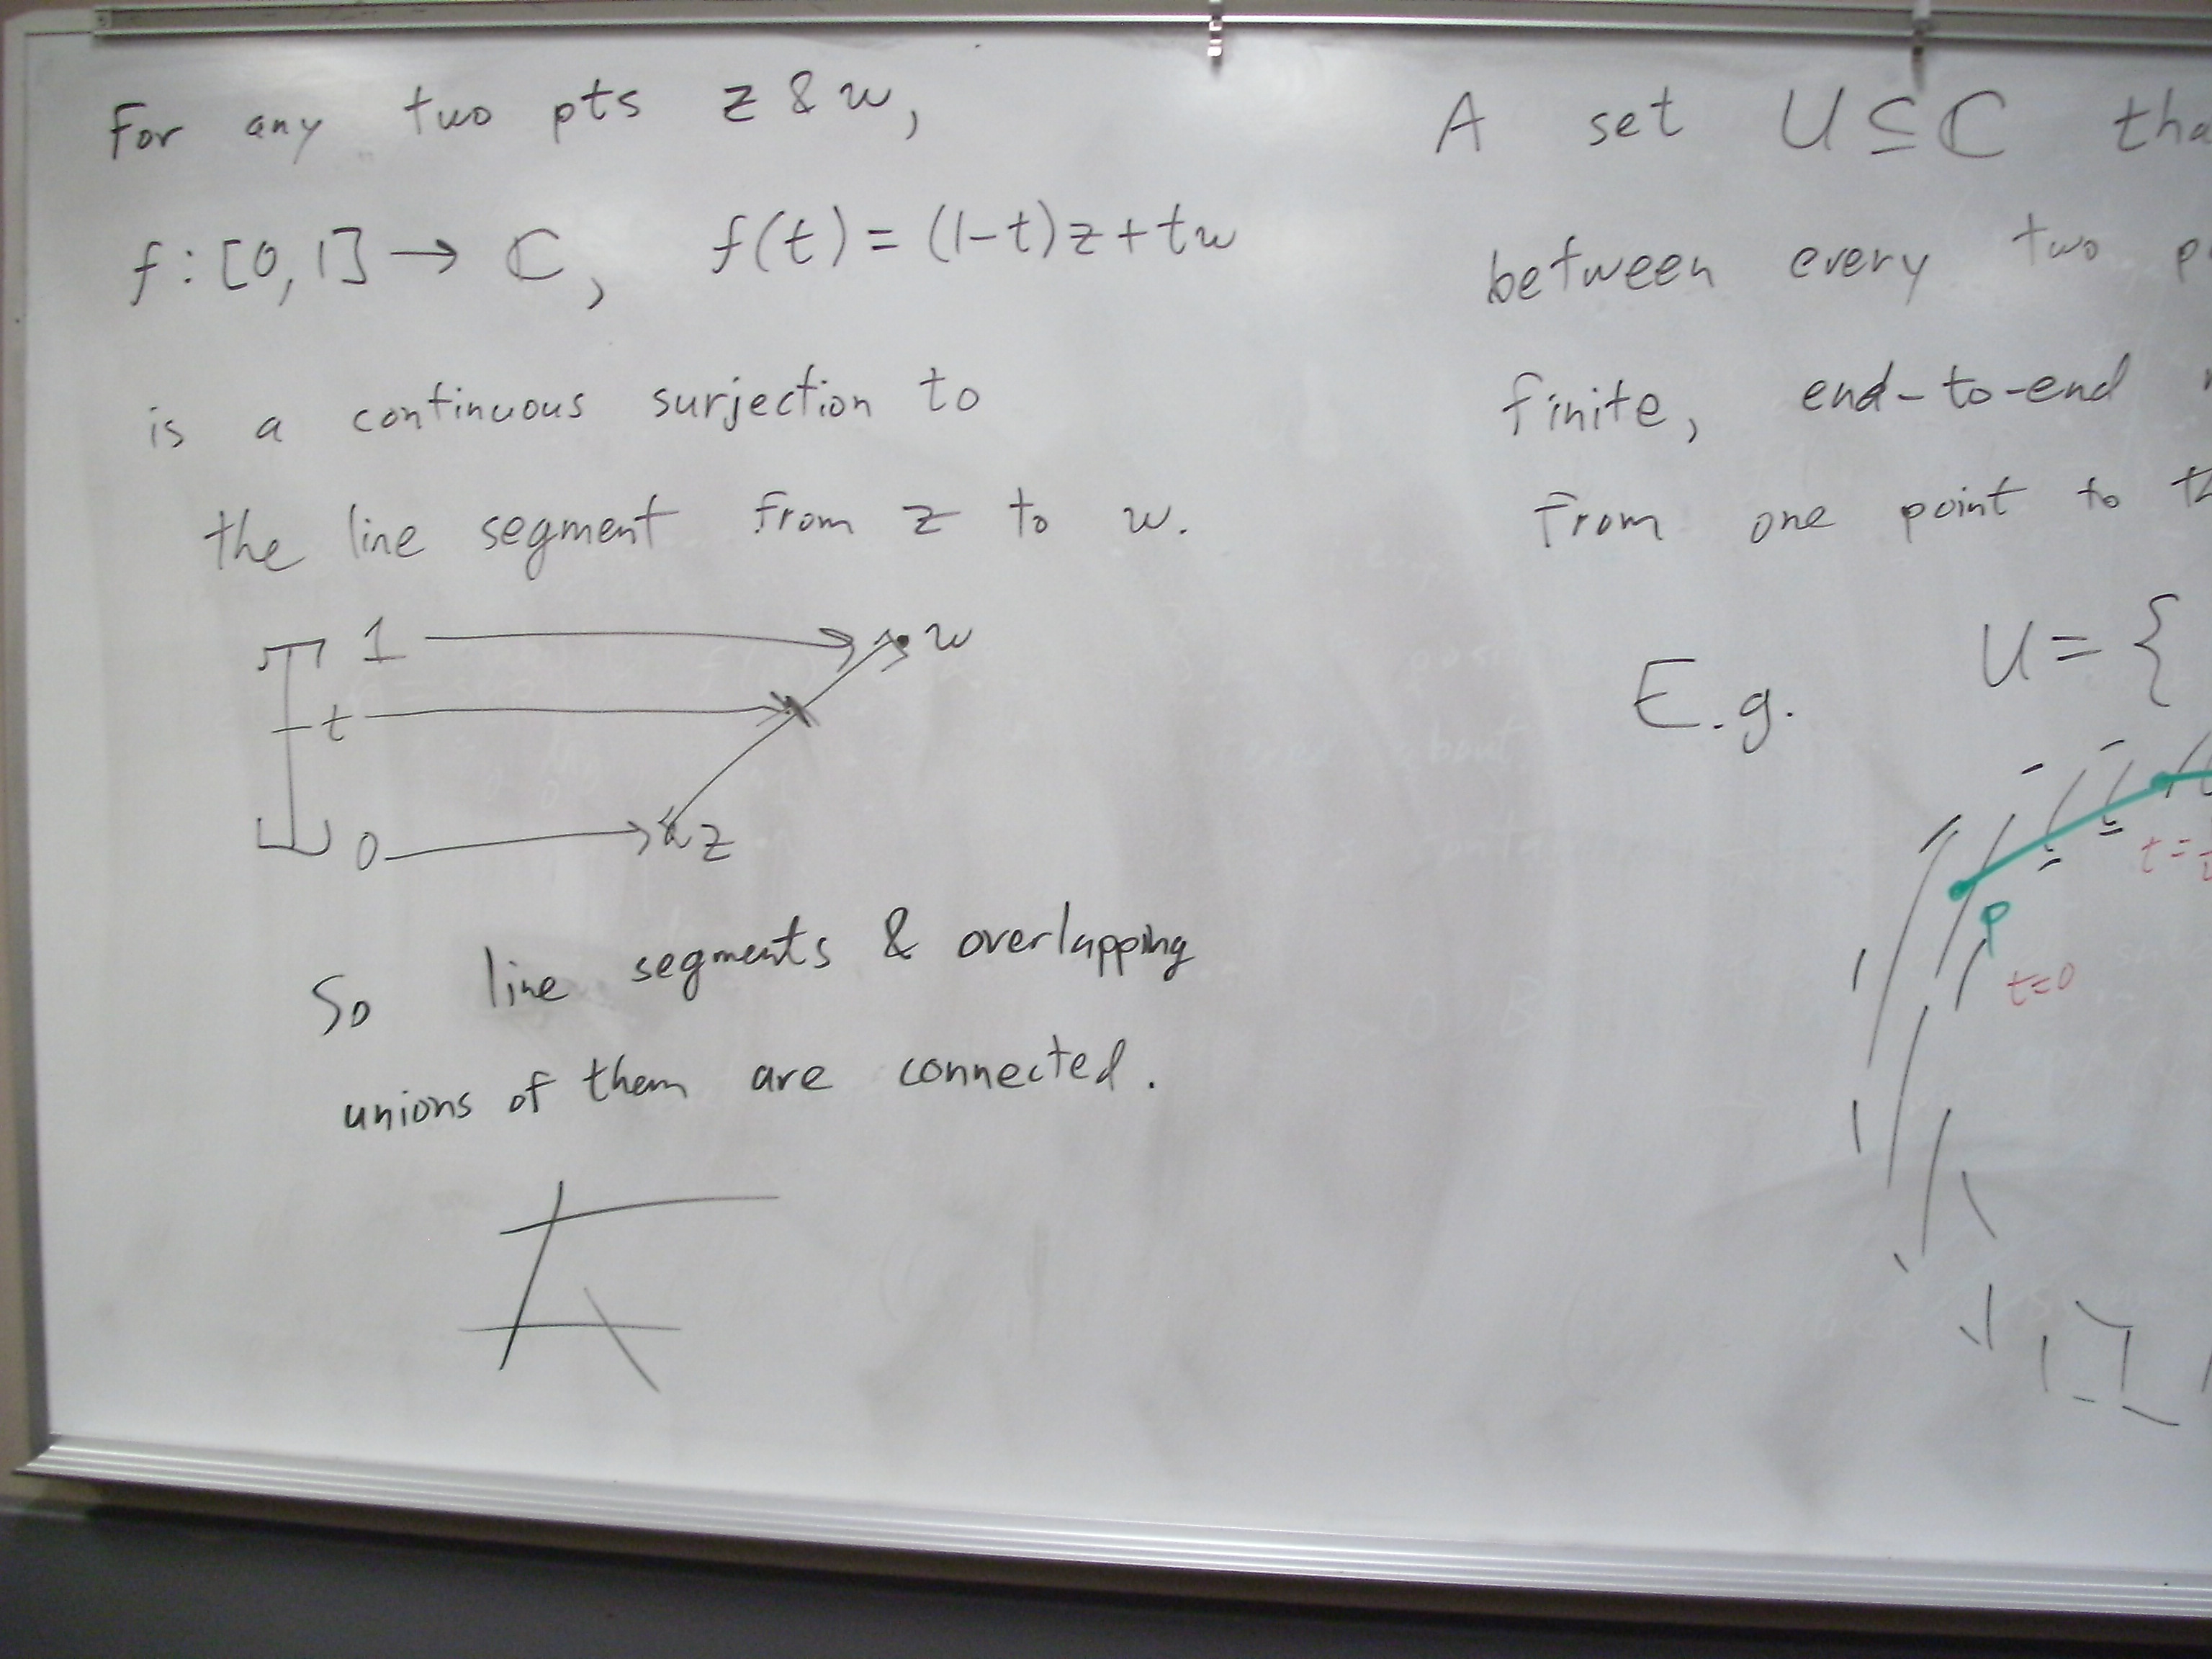 For any two pts z & w,
f:[0,1] → ℂ, f(t) = (1-t)z+tw
is a continuous surjection to
the line segment from z to w.
1 w
t
0 z
So line segments & overlapping
unions of them are connected.
A set U ⊆ ℂ
between every two
finite, end-to-end
from one point to
E.g. U = {
p
t=0
t=